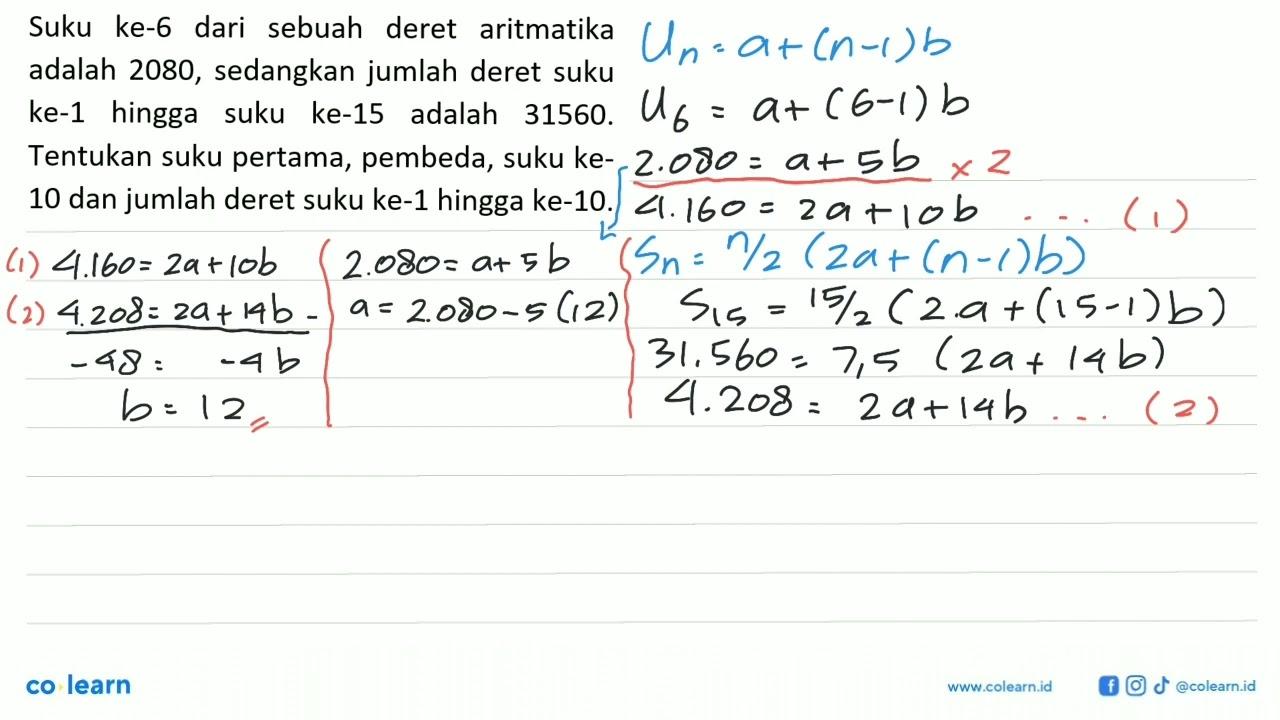 Suku ke-6 dari sebuah deret aritmatika
adalah 2080, sedangkan jumlah deret suku
ke-1 hingga suku ke-15 adalah 31560.
Tentukan suku pertama, pembeda, suku ke-
10 dan jumlah deret suku ke-1 hingga ke-10.
Un = a+(n-1)b
U6 = a+(6-1)b
2.080 = a+5b × 2
4.160 = 2a+10b ... (1)
(1) 4.160 = 2a+10b
(2) 4.208 = 2a+14b -
-48 = -4b
b = 12
2.080 = a+5b
a = 2.080-5(12)
Sn = n/2 (2a+(n-1)b)
S15 = 15/2 (2.a+(15-1)b)
31.560 = 7,5 (2a+14b)
4.208 = 2a+14b ... (2)
co learn
www.colearn.id
@colearn.id